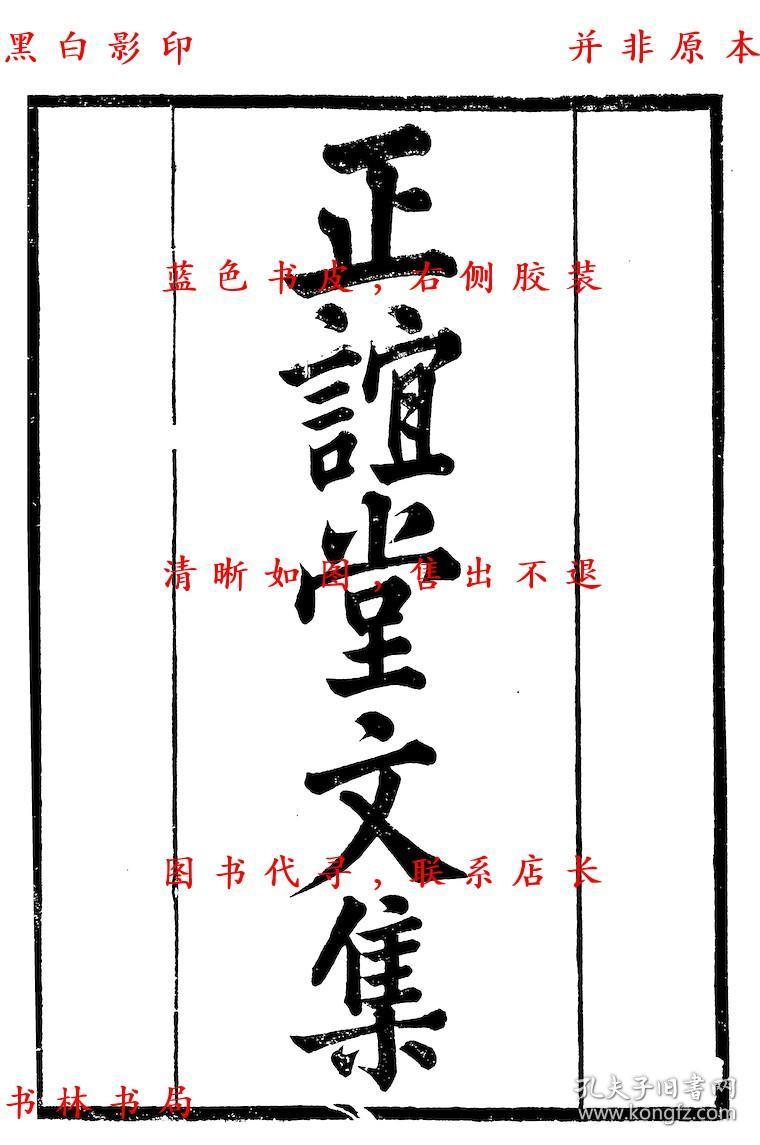 黑白影印
并非原本
正誼堂文集
蓝色书皮,右侧胶装
清晰如图,售出不退
图书代寻,联系店长
书林书局
孔夫子旧书网
www.kongfz.com